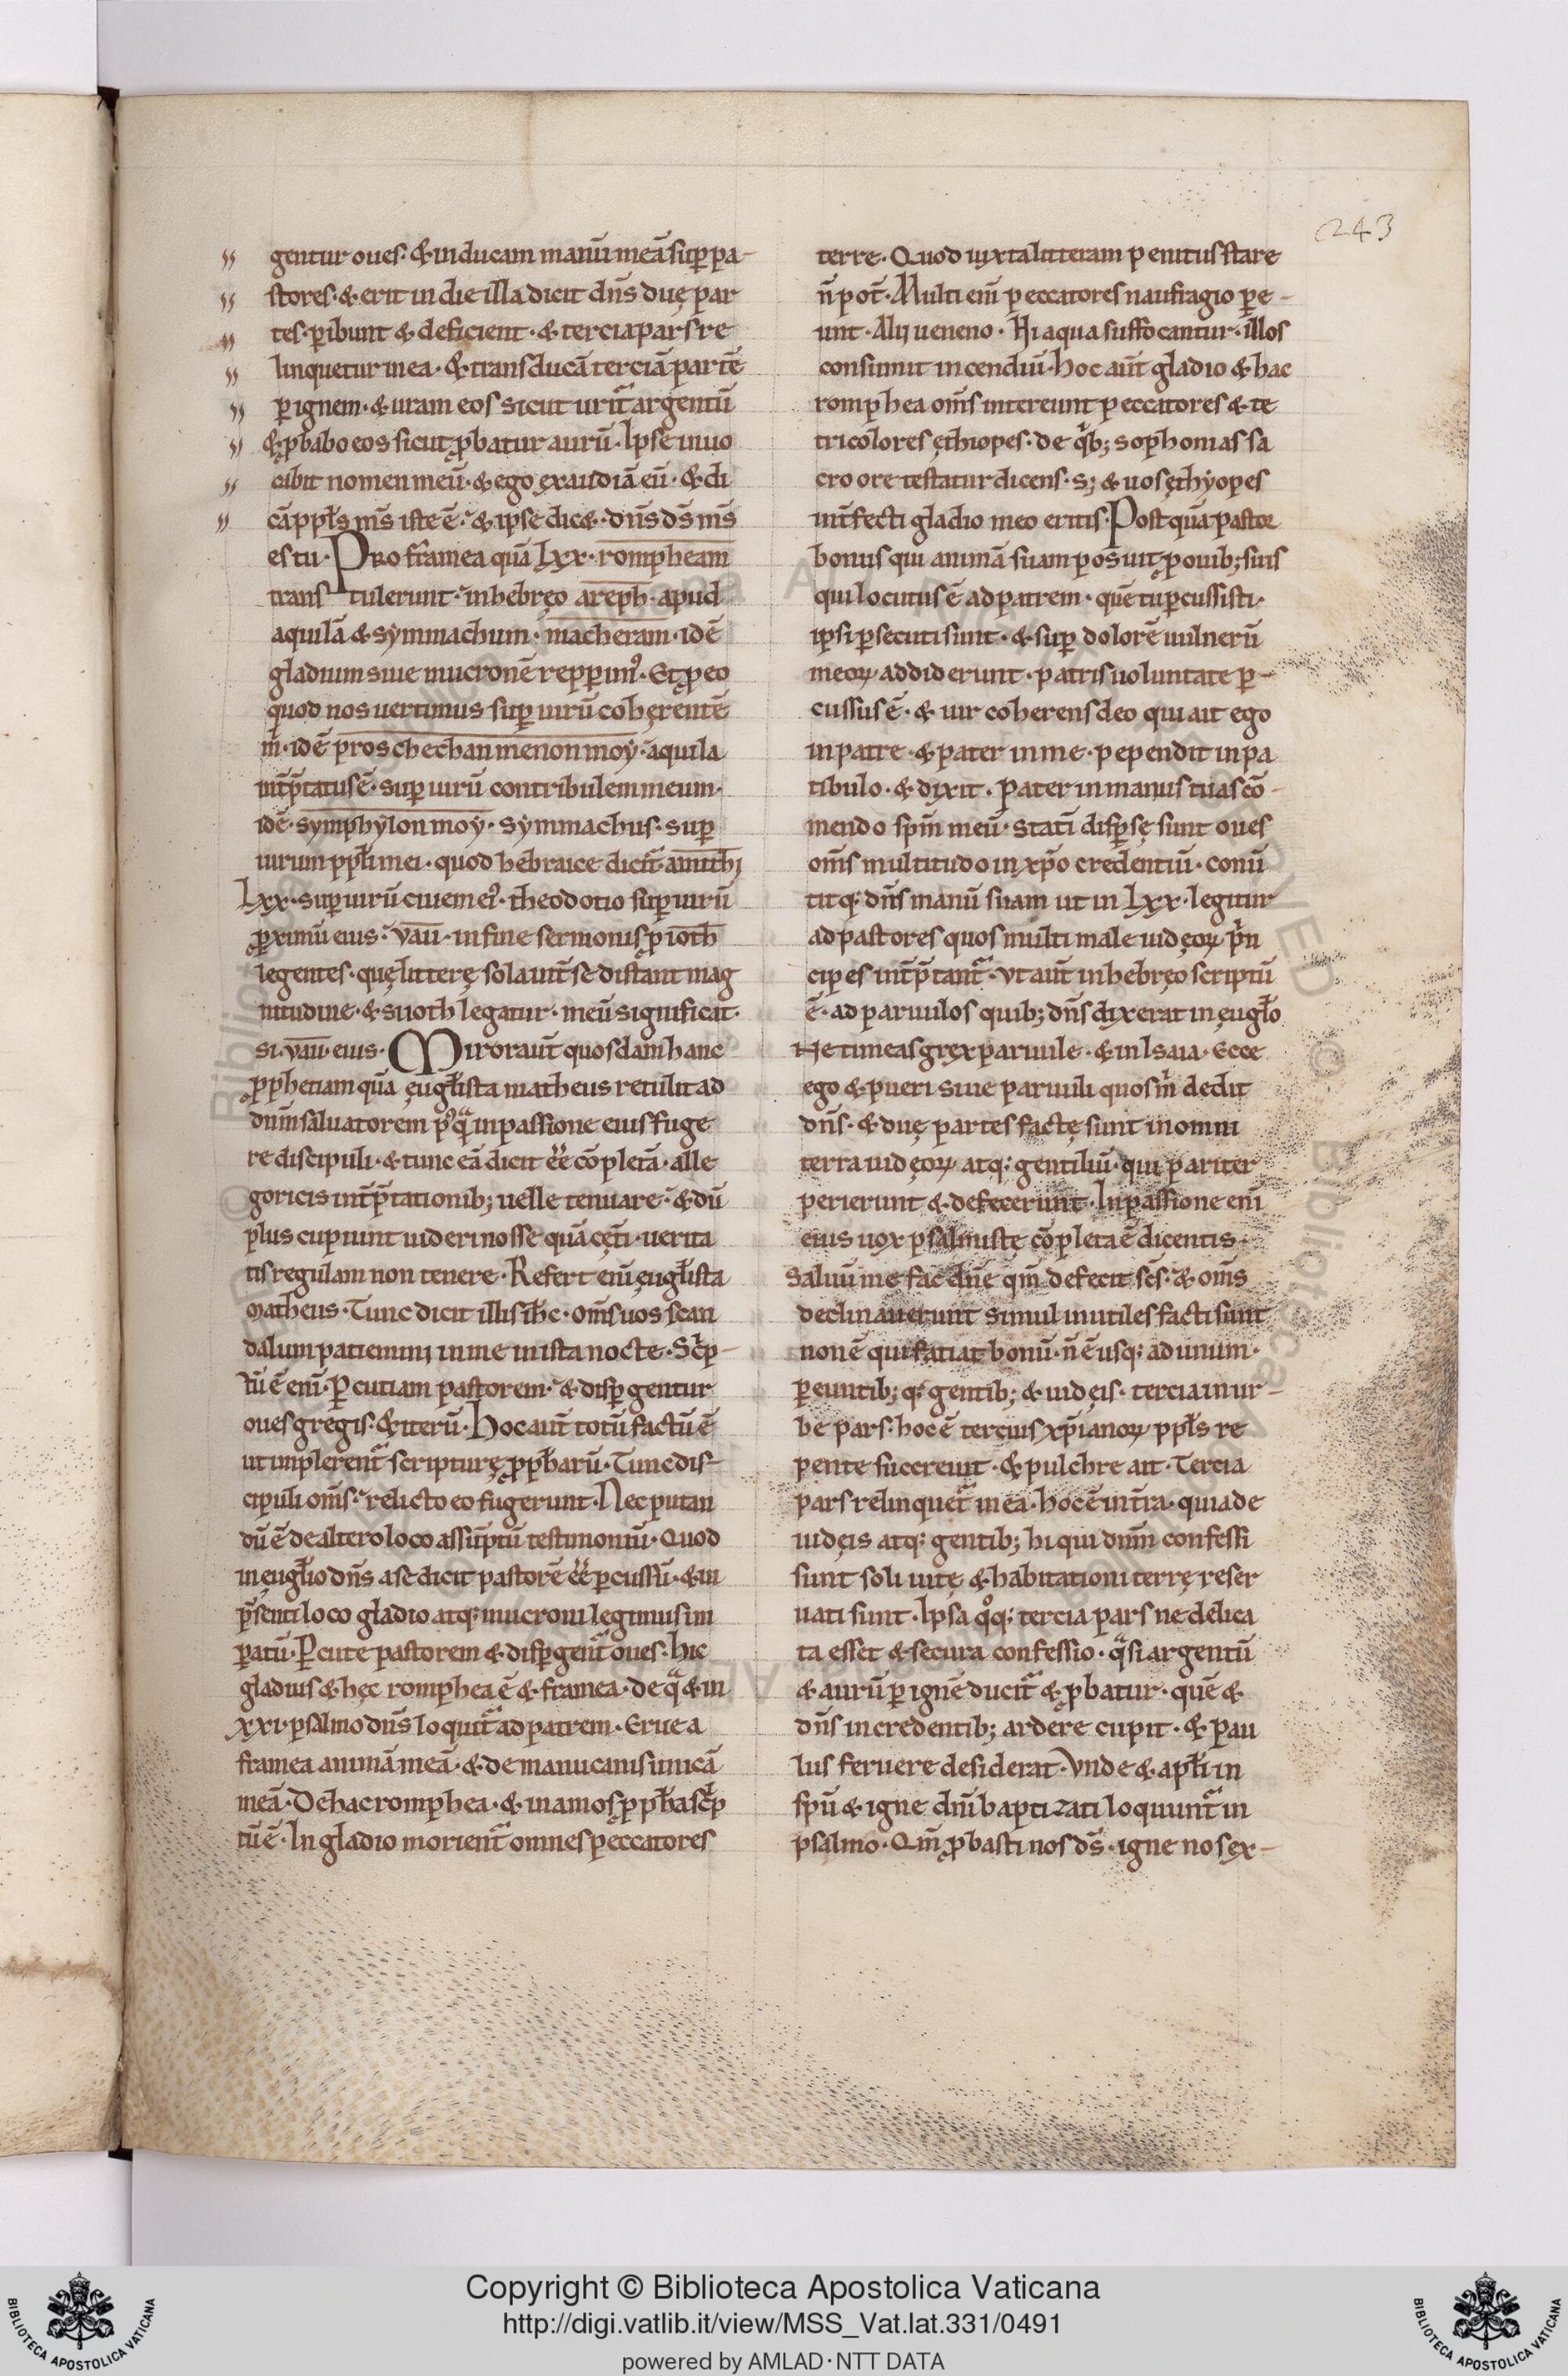 243
gentur oues· & inducam manū meā sup̄ pa-
stores· & erit in die illa dicit dn̄s duę par
tes· p̄ibunt & deficient· & tercia pars re
linquetur in ea· & transducā terciā partē
p̄ ignem· & uram eos sicut urit᷑ argentū
& ꝓbabo eos sicut ꝓbatur aurū· Ipse inuo
cabit nomen meū· & ego exaudiā eū· & di
cā ppl̄s m̄s iste ē· & ipse dic&· dn̄s ds̄ m̄s
es tu· Pro framea quā Lxx· rompheam
transtulerunt· in hebręo areph· apud
aquilā & symmachum· macheram· idē
gladium siue mucronē repperim᷒· Et ꝓ eo
quod nos uertimus sup̄ uirū coherentē
m̄· idē pros chechan menon moy· aquila
int̄p̄tatus ē· sup̄ uirū contribulem meum·
idē· symphylon moy· symmachus· sup̄
uirum ppl̄i mei· quod hebraice dicit᷑ amithi
Lxx· sup̄ uirū ciuem ei᷒· theodotio sup̄ uirū
ꝓximū eius· vau· in fine sermonis ꝓ ioth
legentes· quę litterę sola int̄ se distant mag
nitudine· & si ioth legatur· meū significat·
si· vau· eius· Miror aut̄ quosdam hanc
ꝓphetiam quā ęugl̄ista matheus retulit ad
dnm̄ saluatorem p᷒ q̄ in passione eius fuge
re discipuli· & tunc eā dicit ēē cōpletā· alle
goricis int̄p̄tationib; uelle tenuare· & dū
plus cupiunt uideri nosse quā cęt̄i· uerita
tis regulam non tenere· Refert eni᷑ ęugl̄ista
Matheus· Tunc dicit illis ih̄c· om̄s uos scan
dalum patiemini in me in ista nocte· Sc̄p-
tū ē eni᷑· P̄cutiam pastorem· & disp̄gentur
oues gregis· & iterū· Hoc aut̄ totū factū ē
ut implerent᷑ scripturę ꝓph̄arū· Tunc dis-
cipuli om̄s· relicto eo fugerunt· Nec putan
dū ē de altero loco assūptū testimoniū· Quod
in ęugl̄io dn̄s a se dicit pastorē ēē p̄cussū· & in
p̄senti loco gladio atq; mucroni legimus im
p̄atū· P̄cute pastorem & disp̄gent᷑ oues· hic
gladius & hęc romphea ē & framea· de q̄ & in
xxi· psalmo dn̄s loquit᷑ ad patrem· Erue a
framea animā meā· & de manu canis unicā
meā· De hac romphea· & in amos ꝓph̄a sc̄p
tū ē· In gladio morient᷑ omnes peccatores
terre· Quod iuxta litteram penitus stare
n̄ pot̄· Multi eni᷑ peccatores naufragio pe-
unt· Alii ueneno· Hi aqua suffocantur· illos
consumit incendiū· hoc aut̄ gladio & hac
romphea om̄s intereunt peccatores & te
tricolores ęthiopes· de q̄b; sophonias sa
cro ore testatur dicens· S; & uos ęthyopes
int̄fecti gladio meo eritis· Postquā pastor
bonus qui animā suam posuit ꝓ ouib; suis
qui locutus ē ad patrem· quē tu p̄cussisti·
ipsi p̄secuti sunt· & sup̄ dolorē uulnerū
meoꝝ addiderunt· patris uoluntate p̄-
cussus ē· & uir coherens deo qui ait ego
in patre· & pater in me· pependit in pa
tibulo· & dixit· Pater in manus tuas cō-
mendo sp̄m meū· statī disp̄sę sunt oues
om̄s multitudo in xp̄o credentiū· conū
titq; dn̄s manū suam ut in Lxx· legitur
ad pastores quos multi male iudęoꝝ p̄n
cipes int̄p̄tant᷑· Vt aut̄ in hebręo scriptū
ē· ad paruulos quib; dn̄s dixerat in ęugl̄o
Ne timeas grex paruule· & in Isaia· Ecce
ego & pueri siue paruuli quos m̄ dedit
dn̄s· & duę partes factę sunt in omni
terra iudęoꝝ atq; gentiliū· qui pariter
perierunt & defecerunt· In passione eni᷑
eius uox psalmistę cōpleta ē dicentis·
Saluū me fac dn̄e qm̄ defecit sc̄s· & om̄s
declinauerunt simul inutiles facti sunt
non ē qui faciat bonū· n̄ ē usq; ad unum·
p̄euntib; q; gentib; & iudęis· tercia in ur-
be pars· hoc ē tercius xp̄ianoꝝ ppl̄s re
pente succreuit· & pulchre ait· Tercia
pars relinquet᷑ in ea· hoc ē in t̄ra· quia de
iudęis atq; gentib; hi qui dnm̄ confessi
sunt soli uitę & habitationi terrę reser
uati sunt· Ipsa q̊q; tercia pars ne delica
ta esset & secura confessio· q̄si argentū
& aurū p̄ ignē ducit᷑ & ꝓbatur· quē &
dn̄s in credentib; ardere cupit· & pau
lus feruere desiderat· Vnde & apl̄i in
sp̄u & igne dn̄i baptizati loquunt᷑ in
psalmo· Qm̄ ꝓbasti nos ds̄· igne nos ex-
Copyright © Biblioteca Apostolica Vaticana
http://digi.vatlib.it/view/MSS_Vat.lat.331/0491
powered by AMLAD·NTT DATA
BIBLIOTECA APOSTOLICA VATICANA
BIBLIOTECA APOSTOLICA VATICANA